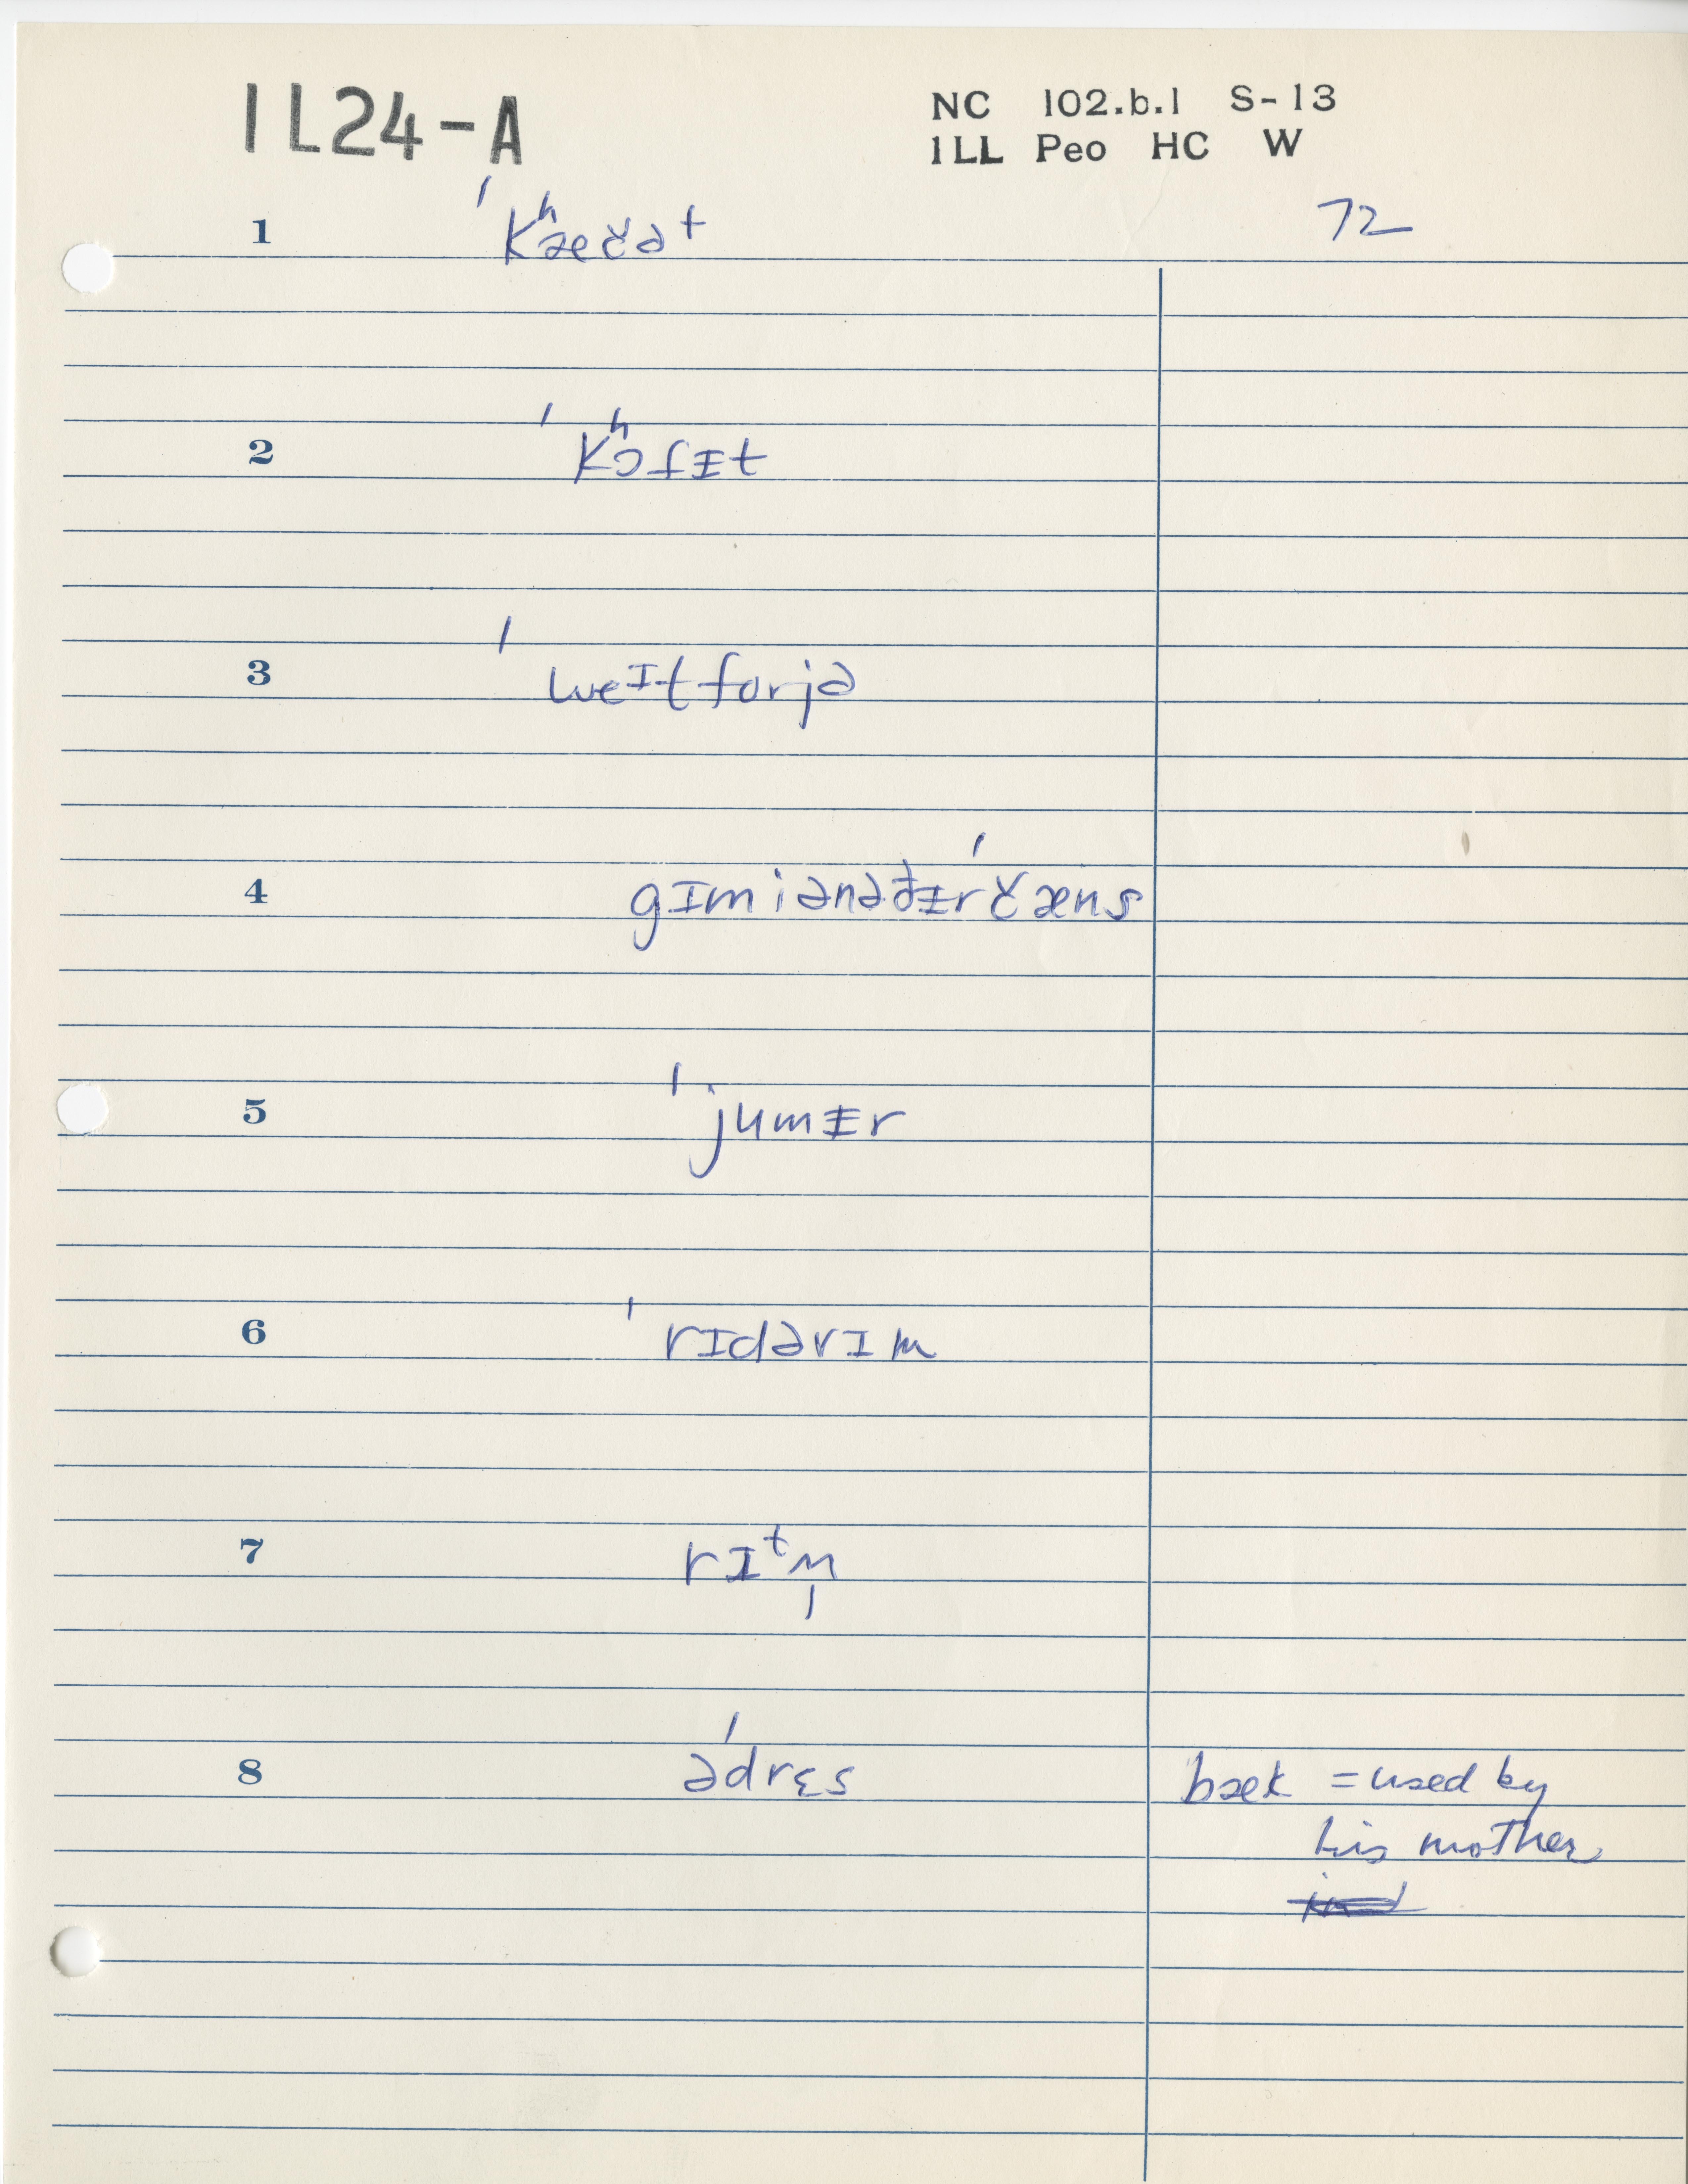 1L24-A
NC 102.b.1 S-13
1LL Peo HC W
72
1 ˈkʰæčət
2 ˈkʰɔfɨt
3 ˈweɪt forjə
4 gɪmiənəðɨrčǽns
5 ˈjumɨr
6 ˈrɪdərɪm
7 rɪᵗm̩
8 ədrɛ́s
bæk = used by
his mother